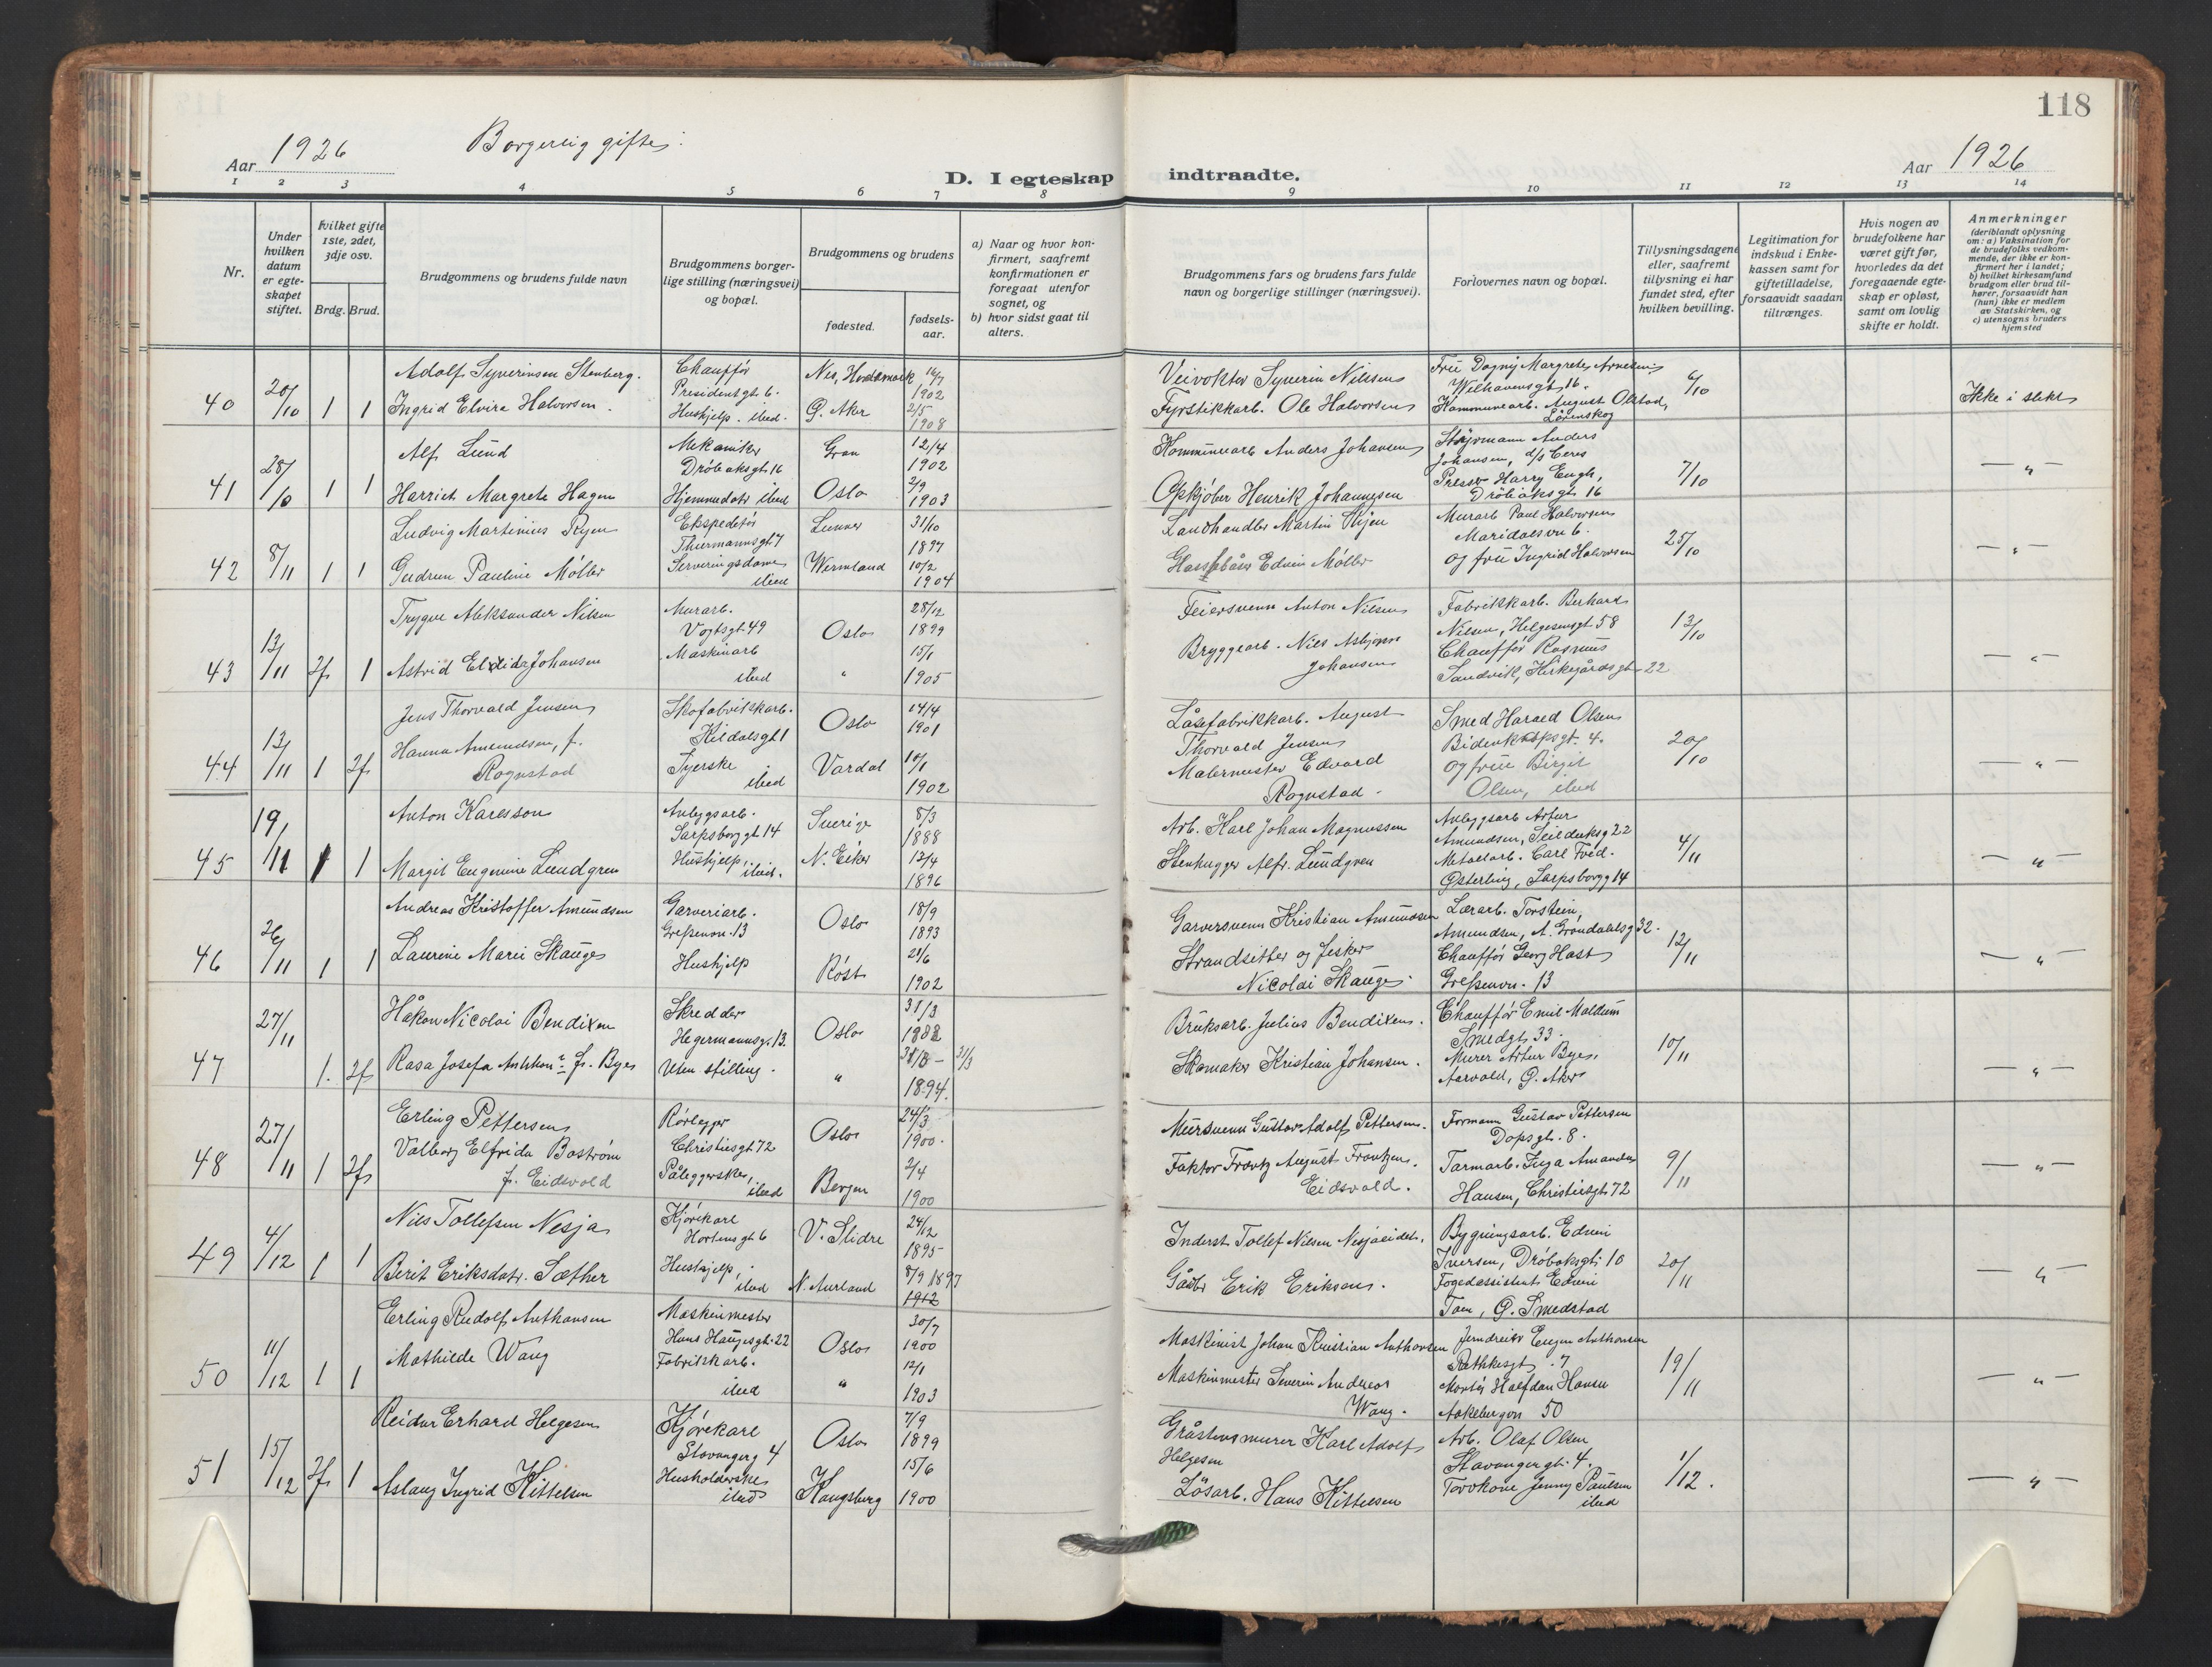 118
Aar 1926
Borgerlig gifte.
D. I egteskap indtraadte.
Aar 1926
1 2 3 4 5 6 7 8 9 10 11 12 13 14
Nr.
Under hvilken datum er egteskapet stiftet.
Hvilket gifte 1ste, 2det, 3dje osv.
Brdg. Brud.
Brudgommens og brudens fulde navn
Brudgommens borgerlige stilling (næringsvei) og bopæl.
Brudgommens og brudens
fødested.
fødselsaar.
a) Naar og hvor konfirmert, saafremt konfirmationen er foregaat utenfor sognet, og
b) hvor sidst gaat til alters.
Brudgommens fars og brudens fars fulde navn og borgerlige stillinger (næringsvei).
Forlovernes navn og bopæl.
Tillysningsdagene eller, saafremt tillysning ei har fundet sted, efter hvilken bevilling.
Legitimation for indskud i Enkekassen samt for giftetilladelse, forsaavidt saadan tiltrænges.
Hvis nogen av brudefolkene har været gift før, hvorledes da det foregaaende egteskap er opløst, samt om lovlig skifte er holdt.
Anmerkninger (deriblandt oplysning om: a) Vaksination for de brudefolks vedkommende, der ikke er konfirmert her i landet; b) hvilket kirkesamfund brudgom eller brud tilhører, forsaavidt han (hun) ikke er medlem av Statskirken, og c) utensogns bruders hjemsted
40 20/10 1 1
Adolf Syverinsen Stenberg.
Ingrid Elvira Halvorsen.
Chauffør
Presidentgt. 6.
Hushjelp. ibid.
Nes, Hedemark 16/7 1902
Ø. Aker 2/5 1908
Veivokter Syverin Nilsen
Fyrstikkarb. Ole Halvorsen
Frue Dagny Margrete Arnesen
Welhavensgt 16.
Kommunearb. August Olstad,
Lørenskog
6/10
Ikke i slekt
41 28/10 1 1
Alf Lund
Harriet Margrete Hagen
Mekaniker
Drøbaksgt. 16
Hjemmedatr ibid
Gran 12/4 1902
Oslo 2/9 1903
Kommunearb Anders Johansen
Opkjøber Henrik Johannesen
Styrmann Anders
Johansen, d/s Ceres
Presser Harry Engh,
Drøbaksgt 16
7/10
— " —
42 8/11 1 1
Ludvig Martinius Ryen
Gudrun Pauline Møller
Ekspeditør
Thurmannsgt 7
Serveringsdame
ibid
Lunner 31/10 1897
Wermland 10/2 1904
Landhandler Martin Ryen
Edvin Møller
Murarb Paul Halvorsen
Maridalsvn 6.
og frue Ingrid Halvorsen
25/10
— " —
43 13/11 2f 1
Trygve Aleksander Nilsen
Astrid Elida Johansen
Murarb.
Vogtsgt. 49
Maskinarb
ibid
Oslo 28/12 1899
" 15/1 1905
Feiersvenn Anton Nilsen
Bryggearb. Nils Asbjørn
Johansen
Fabrikkarb. Berhard
Nilsen, Helgesensgt 58
Chauffør Rasmus
Sandvik, Kirkegårdsgt 22
13/10
— " —
44 13/11 1 2f
Jens Thorvald Jensen
Hanna Amundsen, f.
Rognstad
Skofabrikkarb.
Kildalsgt 1
Syerske
ibid
Oslo 14/4 1901
Vardal 10/1 1902
Låsefabrikkarb. August
Thorvald Jensen
Malermester Edvard
Rognstad.
Smed Harald Olsen
Bidenkapsgt. 4.
og frue Birgit
Olsen, ibid
20/10
— " —
45 19/11 1 1
Anton Karlsson
Margit Eugenine Lundgren
Anlegsarb.
Sarpsborggt 14
Hushjelp, ibid.
Sverige 8/3 1888
N. Eiker 13/4 1896
Arb. Karl Johan Magnussen
Stenhugger Alfr. Lundgren
Anlegsarb Artur
Amundsen, Seilduksg 22
Metallarb. Carl Fred.
Østerling, Sarpsborgg 14
4/11
— " —
46 26/11 1 1
Andreas Kristoffer Amundsen
Laurine Marie Skauge
Garveriarb.
Grefsenvn. 13
Hushjelp
Oslo 18/9 1893
Røst 21/6 1902
Garversvenn Kristian Amundsen
Strandsitter og fisker
Nicolai Skauge.
Lærarb. Torstein
Amundsen, A. Grøndalsg 32.
Chauffør Georg Hast
Grefsenvn. 13
12/11
— " —
47 27/11 1. 2f
Håkon Nicolai Bendixen
Rasa Josefa f. Bye
Skredder
Hegermannsg. 13
Uten stilling.
Oslo 31/3 1882
" 31/3 1894.
Bruksarb. Julius Bendixen.
Skomaker Kristian Johansen.
Chauffør Emil Maldum
Smedgt. 33.
Murer Artur Bye,
Aarvold, Ø. Aker
10/11
— " —
48 27/11 1 2f
Erling Pettersen
Valborg Elfrida Bostrøm
f. Eidsvold
Rørlegger
Christiesgt 72
Påleggerske,
ibid
Oslo 24/3 1900.
Bergen 2/4 1900
Mursvenn Gustav Adolf Pettersen.
Faktor Frantz August Frantzen.
Eidsvold.
Formann Gustav Pettersen
Dopsgt. 8.
Tarmarb. Inga Amanda
Hansen, Christiesgt 72
9/11
— " —
49 4/12 1 1
Nils Tollefsen Nesja
Berit Eriksdatr. Sæther
Kjørekarl
Hortensgt 6
Hushjelp,
ibid
V. Slidre 24/12 1895
N. Aurland 8/9 1897 1912
Inderst Tollef Nilsen Nesjaeidet.
Gårdbr Erik Eriksen.
Bygningsarb. Edvin
Iversen, Drøbaksgt. 10
Fogedassistent Edvin
Tom, Ø. Smedstad
20/11
— " —
50 11/12 1 1
Erling Rudolf Anthonsen
Mathilde Wang
Maskinmester
Hans Haugesgt. 22
Fabrikkarb.
ibid
Oslo 30/7 1900
" 12/1 1903
Maskinist Johan Kristian Anthonsen
Maskinmester Severin Andreas
Wang.
Jerndreier Eugen Anthonsen
Rathkesgt. 7
Montør Halfdan Hansen
Aakebergvn 50
19/11
— " —
51 15/12 2f 1
Reidar Erhard Helgesen
Aslaug Ingrid Kittelsen
Kjørekarl
Stavangerg 4
Husholderske
ibid
Oslo 7/9 1899
Kongsberg 15/6 1900
Gråstensmurer Karl Adolf
Helgesen
Løsarb. Hans Kittelsen
Arb. Olaf Olsen
Stavangergt. 4.
Torvkone Jenny Paulsen
ibid
1/12.
— " —